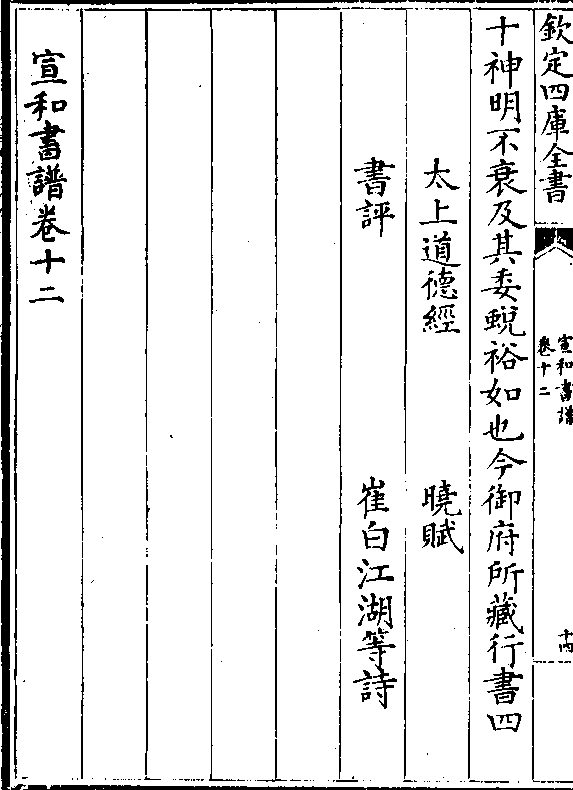 欽定四庫全書
宣和書譜
卷十二
十四
十神明不衰及其委蛻裕如也今御府所藏行書四
太上道德經 曉賦
書評 崔白江湖等詩
宣和書譜卷十二